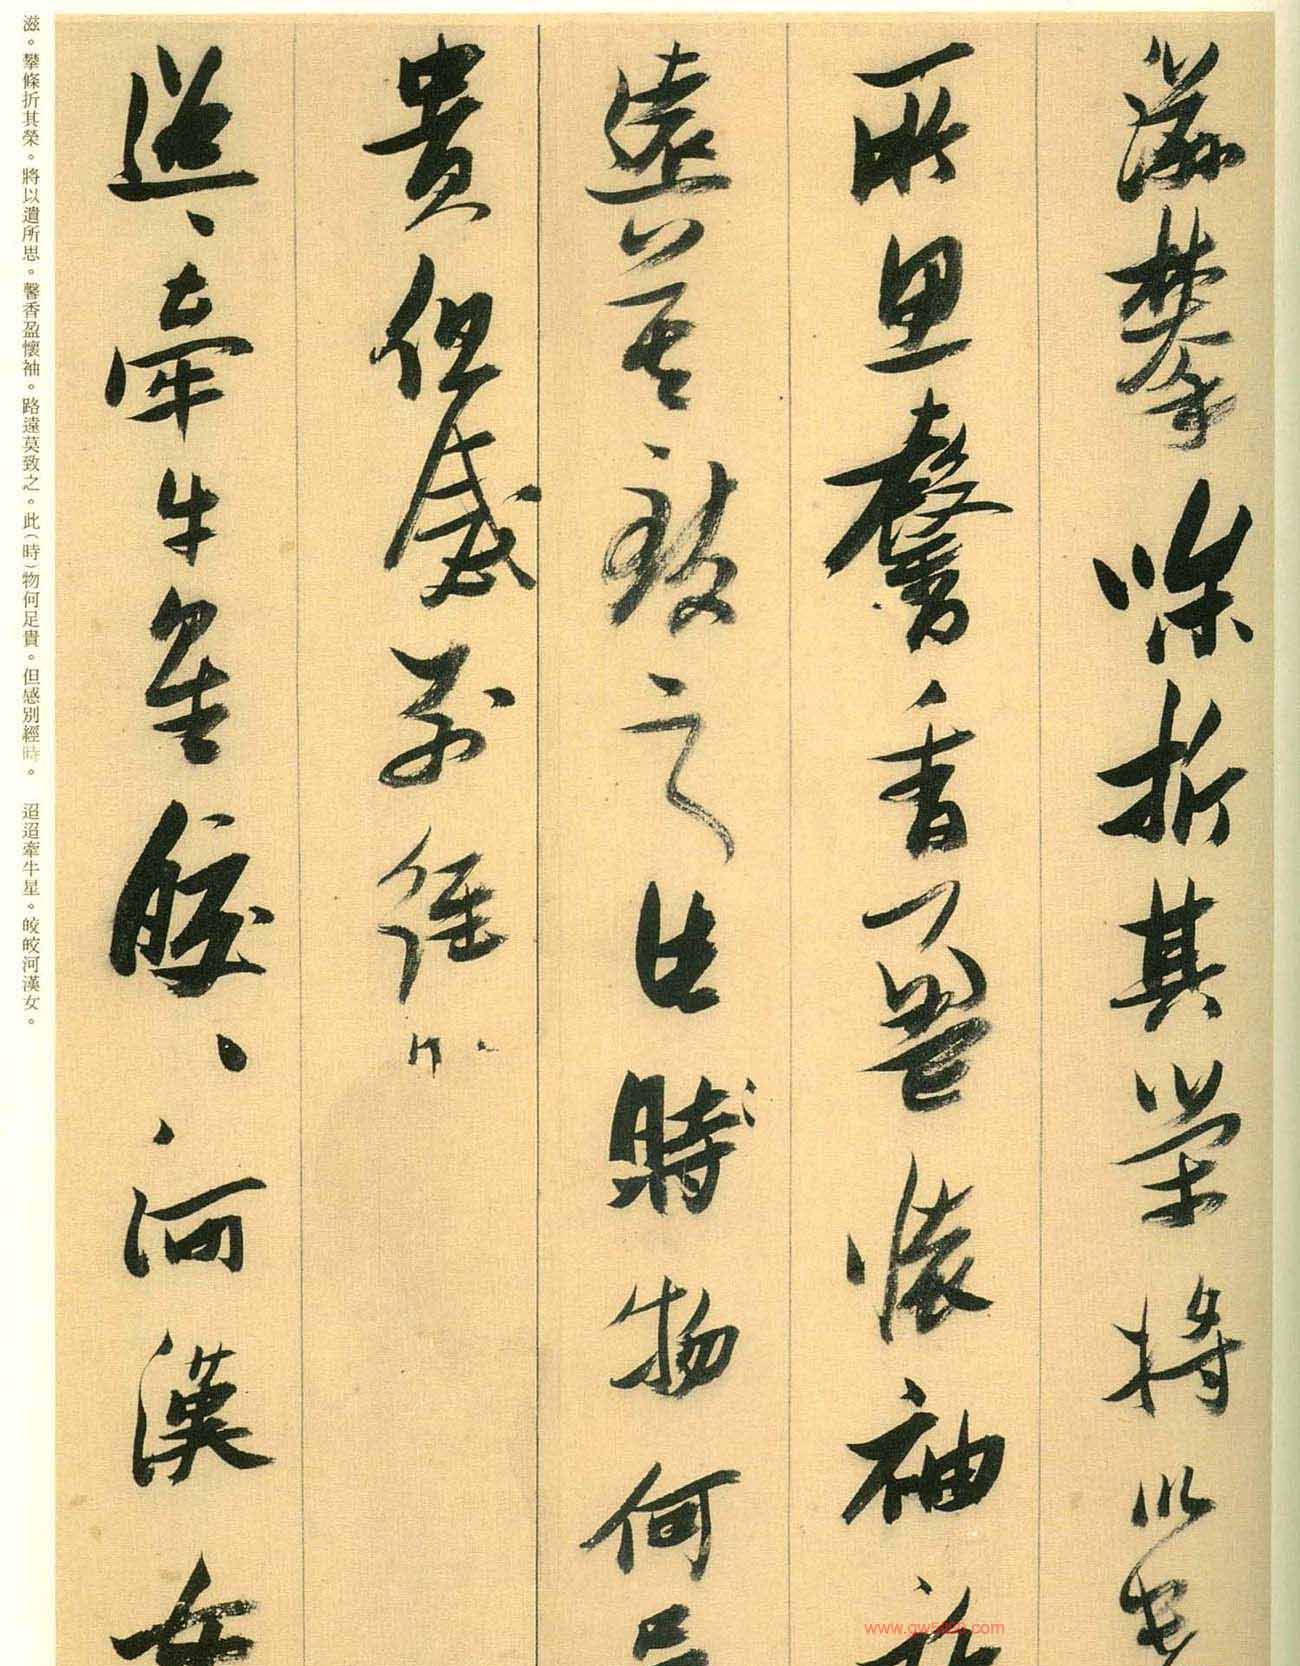 滋攀條折其榮將以遺
所思馨香盈懷袖路
遠莫致之此時物何足
貴但感別經時
迢〻牽牛星皎〻河漢女
滋。攀條折其榮。將以遺所思。馨香盈懷袖。路遠莫致之。此（時）物何足貴。但感別經時。　迢迢牽牛星。皎皎河漢女。